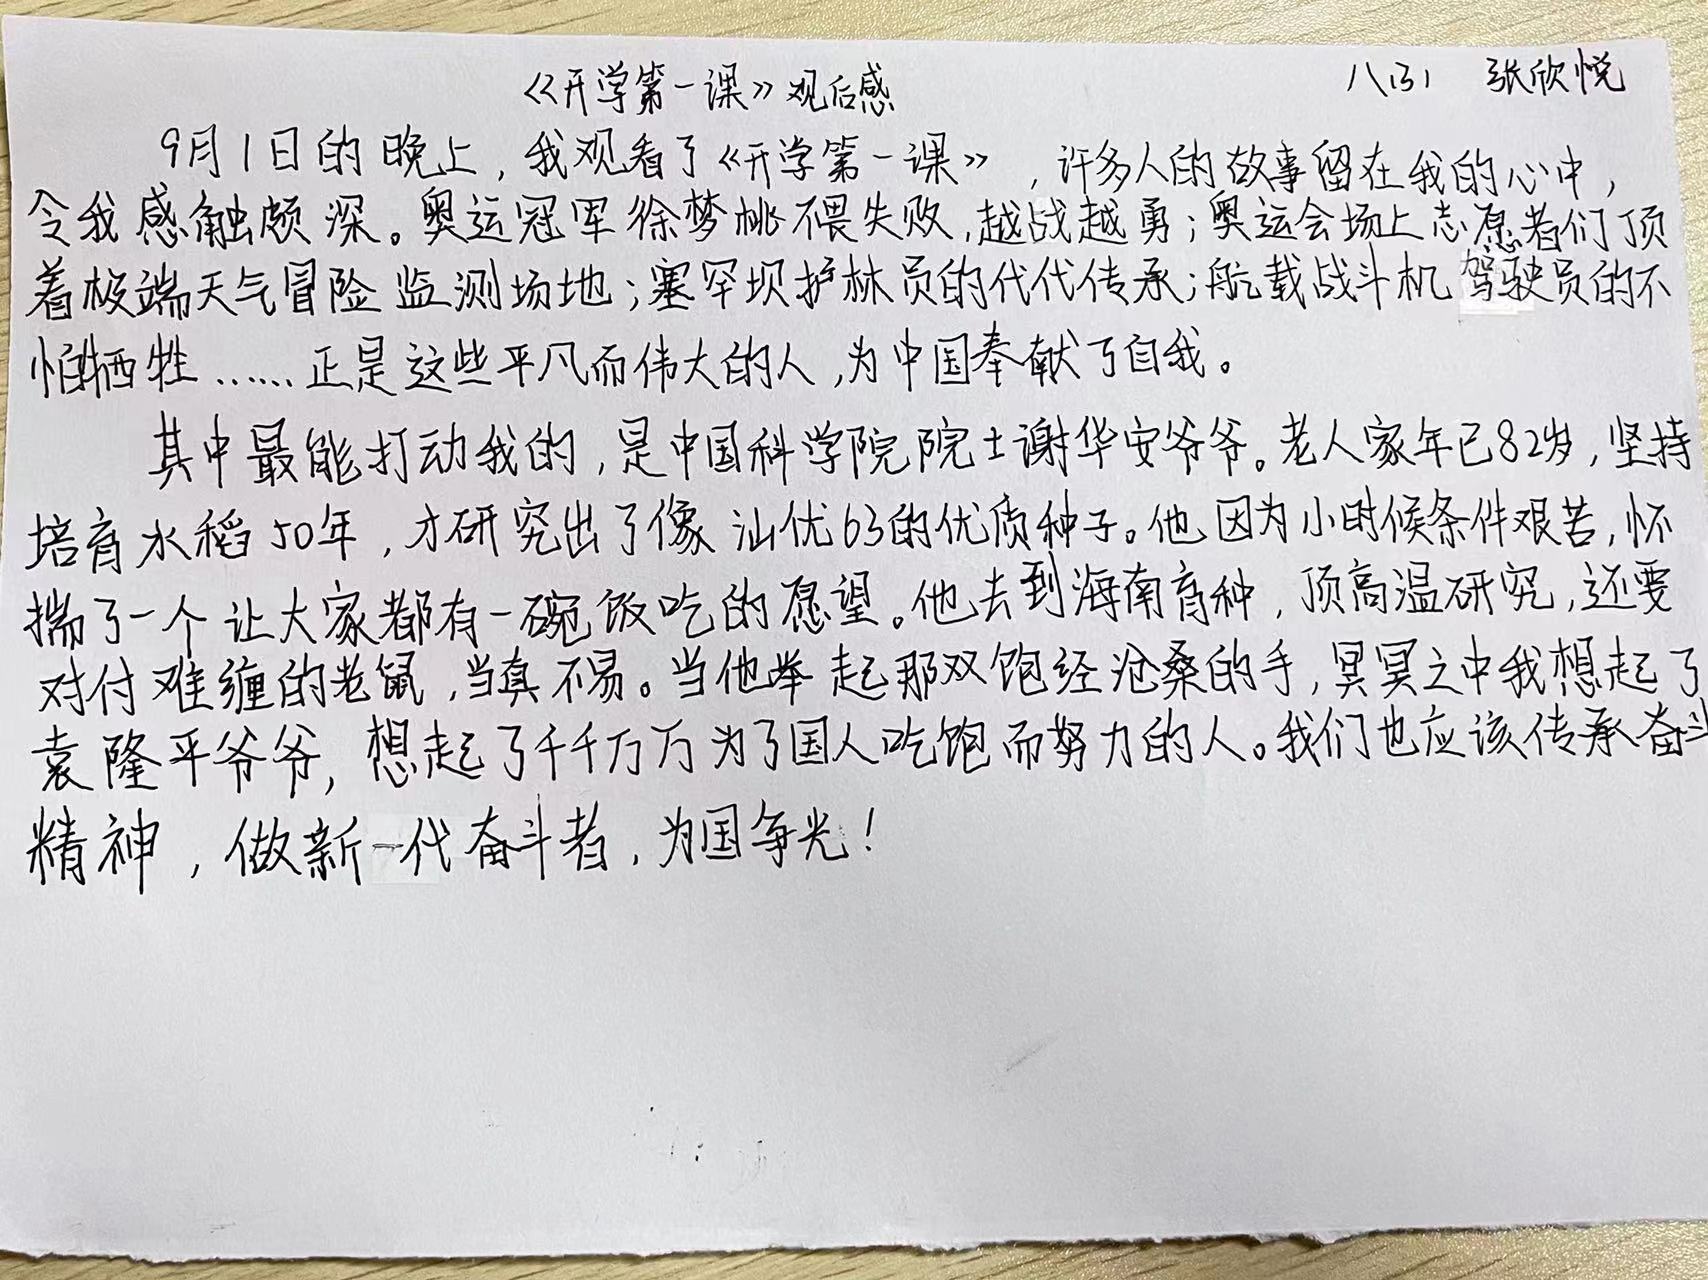 《开学第一课》观后感
八(3) 张欣悦
9月1日的晚上，我观看了《开学第一课》，许多人的故事留在我的心中，
令我感触颇深。奥运冠军徐梦桃不畏失败，越战越勇；奥运会场上志愿者们顶
着极端天气冒险监测场地；塞罕坝护林员的代代传承；航载战斗机驾驶员的不
怕牺牲……正是这些平凡而伟大的人，为中国奉献了自我。
其中最能打动我的，是中国科学院院士谢华安爷爷。老人家年已82岁，坚持
培育水稻50年，才研究出了像汕优63的优质种子。他因为小时候条件艰苦，怀
揣了一个让大家都有一碗饭吃的愿望。他去到海南育种，顶高温研究，还要
对付难缠的老鼠，当真不易。当他举起那双饱经沧桑的手，冥冥之中我想起了
袁隆平爷爷，想起了千千万万为了国人吃饱而努力的人。我们也应该传承奋斗
精神，做新一代奋斗者，为国争光！